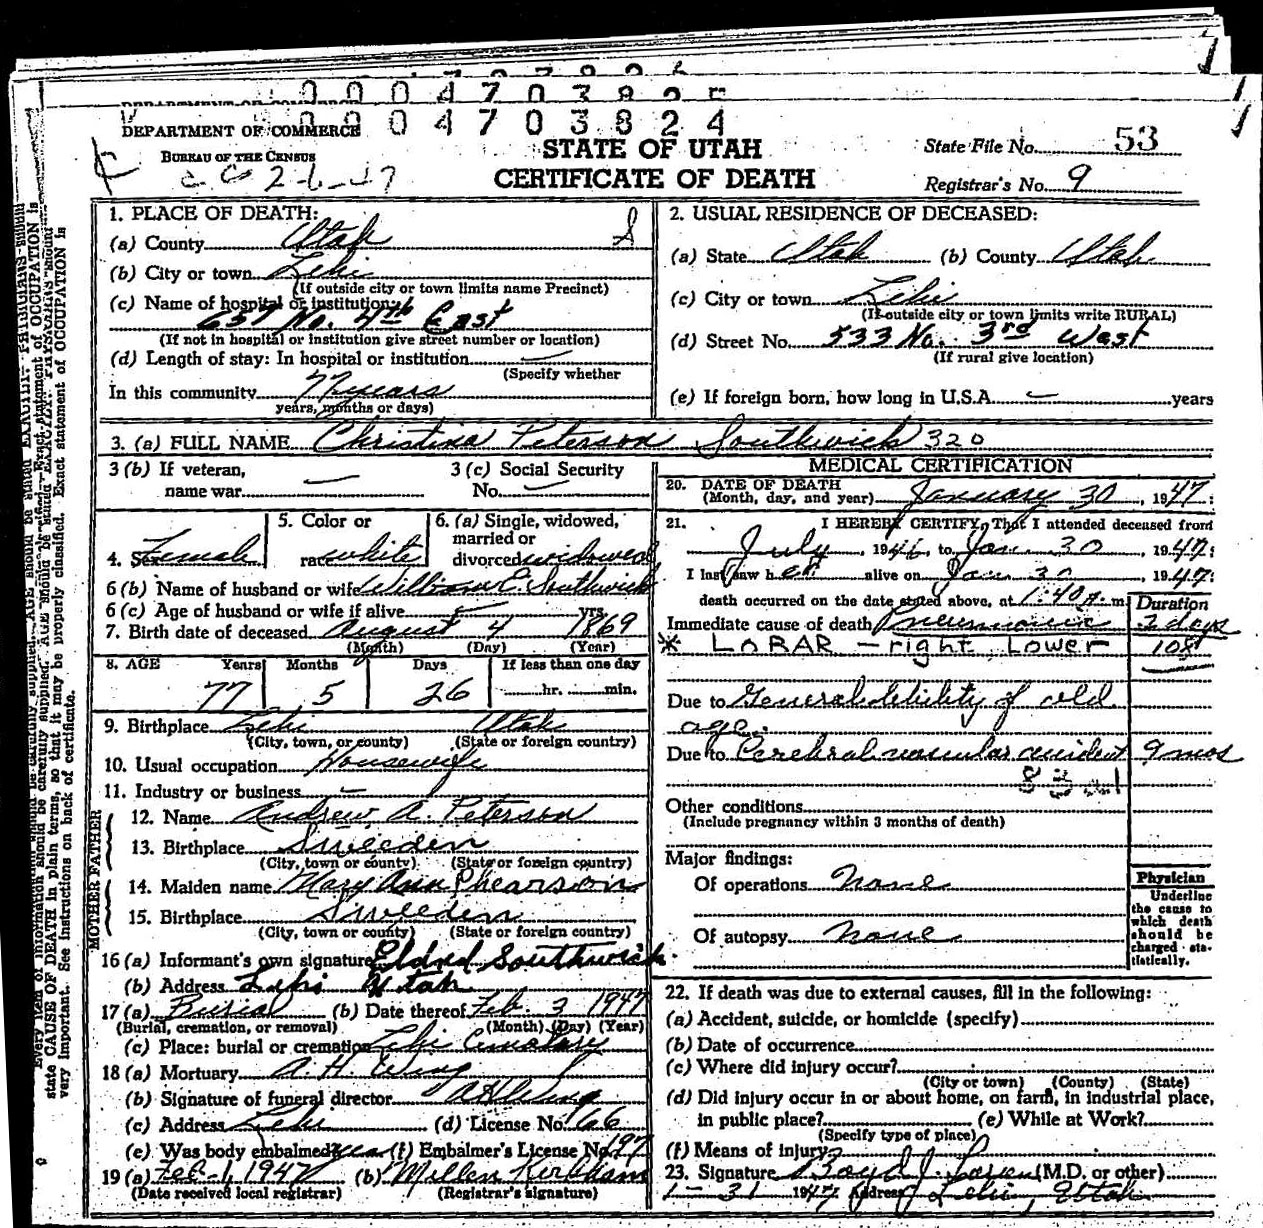 0004703825
DEPARTMENT OF COMMERCE
0004703824
BUREAU OF THE CENSUS
STATE OF UTAH
CERTIFICATE OF DEATH
State File No. 53
Registrar's No. 9
1. PLACE OF DEATH:
(a) County Utah
(b) City or town Lehi
(If outside city or town limits name Precinct)
(c) Name of hospital or institution:
657 No. 4th East
(If not in hospital or institution give street number or location)
(d) Length of stay: In hospital or institution —
(Specify whether
In this community 77 years
years, months or days)
2. USUAL RESIDENCE OF DECEASED:
(a) State Utah (b) County Utah
(c) City or town Lehi
(If outside city or town limits write RURAL)
(d) Street No. 533 No. 3rd West
(If rural give location)
(e) If foreign born, how long in U.S.A. — years
3. (a) FULL NAME Christina Peterson Southwick 320
3 (b) If veteran,
name war —
3 (c) Social Security
No. —
4. Sex Female
5. Color or
race white
6. (a) Single, widowed,
married or
divorced widowed
6 (b) Name of husband or wife William E. Southwick
6 (c) Age of husband or wife if alive — yrs.
7. Birth date of deceased August 4 1869
(Month) (Day) (Year)
8. AGE Years Months Days If less than one day
77 5 26 hr. min.
9. Birthplace Lehi Utah
(City, town, or county) (State or foreign country)
10. Usual occupation Housewife
11. Industry or business —
FATHER
12. Name Andrew A. Peterson
13. Birthplace Sweeden
(City, town or county) (State or foreign country)
MOTHER
14. Maiden name Mary Ann Phearson
15. Birthplace Sweeden
(City, town or county) (State or foreign country)
16 (a) Informant's own signature Eldred Southwick
(b) Address Lehi Utah
17 (a) Burial (b) Date thereof Feb. 3 1947
(Burial, cremation, or removal) (Month) (Day) (Year)
(c) Place: burial or cremation Lehi Cemetary
18 (a) Mortuary A. H. Wing
(b) Signature of funeral director A H Wing
(c) Address Lehi (d) License No. 66
(e) Was body embalmed? yes (f) Embalmer's License No. 197
19 (a) Feb-1, 1947 (b) Millen Kirkham
(Date received local registrar) (Registrar's signature)
MEDICAL CERTIFICATION
20. DATE OF DEATH
(Month, day, and year) January 30, 1947:
21. I HEREBY CERTIFY, That I attended deceased from
July, 1946, to Jan 30, 1947:
I last saw her alive on Jan 30, 1947:
death occurred on the date stated above, at 1:40 A. m
Duration
Immediate cause of death Pneumonia 3 days
* LOBAR – right Lower 108
Due to General debility of old
age.
Due to Cerebral vascular accident 9 mos
Other conditions
(Include pregnancy within 3 months of death)
Major findings:
Of operations none
Of autopsy none
Physician
Underline
the cause to
which death
should be
charged sta-
tistically.
22. If death was due to external causes, fill in the following:
(a) Accident, suicide, or homicide (specify)
(b) Date of occurrence
(c) Where did injury occur?
(City or town) (County) (State)
(d) Did injury occur in or about home, on farm, in industrial place,
in public place? (e) While at Work?
(Specify type of place)
(f) Means of injury?
23. Signature Boyd J. Larson (M.D. or other)
1-31 1947 Address Lehi, Utah